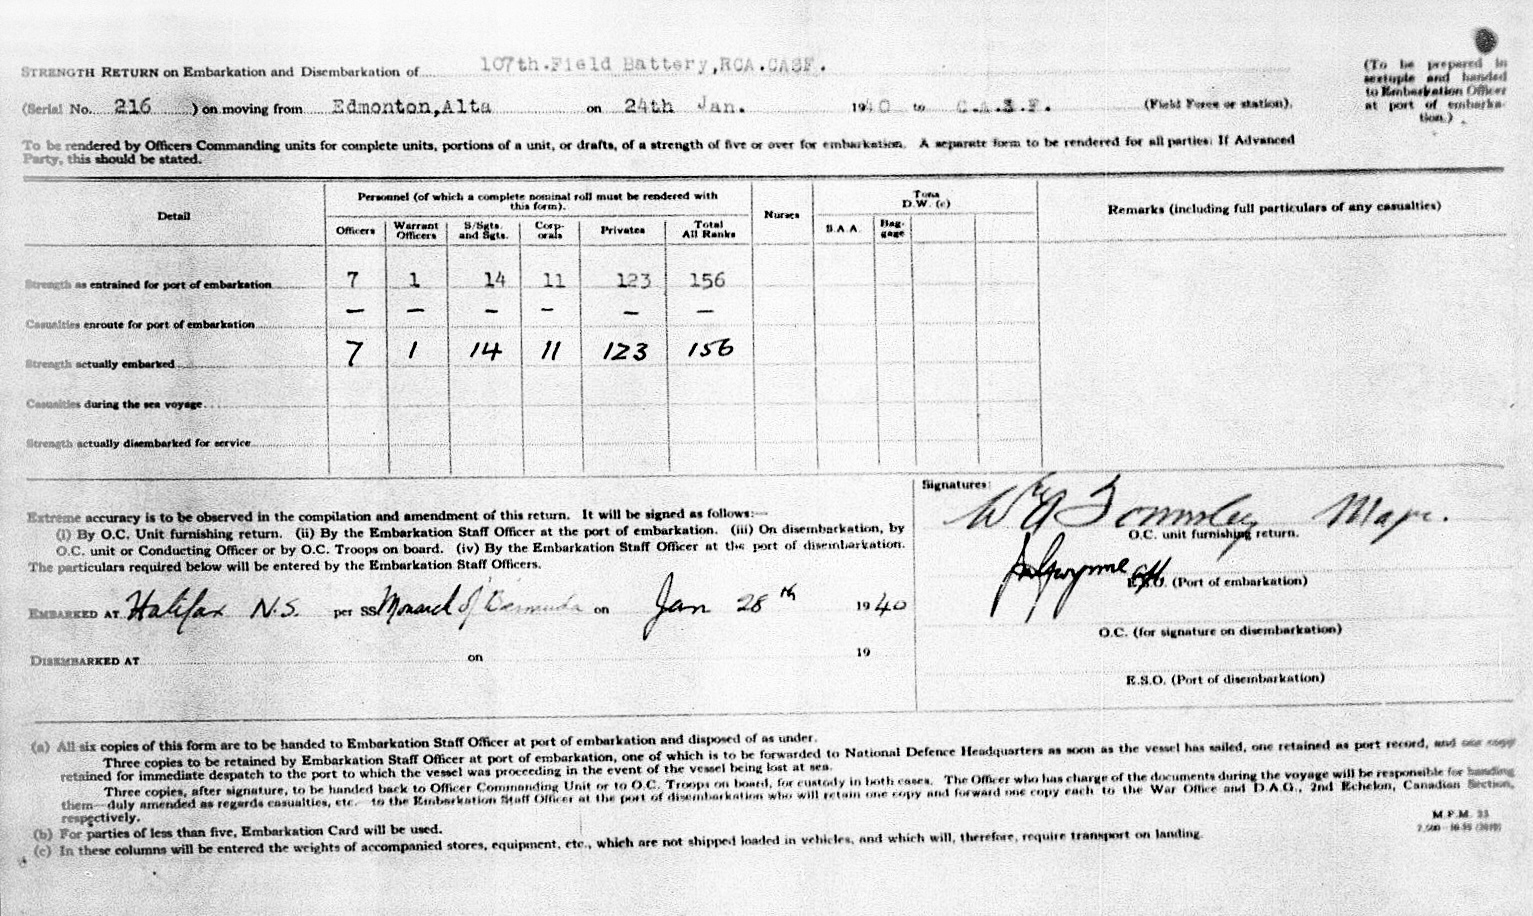 STRENGTH RETURN on Embarkation and Disembarkation of 107th.Field Battery,RCA.CASF.
(To be prepared in
sextuple and handed
to Embarkation Officer
at port of embarka-
tion.)
(Serial No. 216 ) on moving from Edmonton,Alta on 24th Jan. 1940 to C.A.S.F. (Field Force or station).
To be rendered by Officers Commanding units for complete units, portions of a unit, or drafts, of a strength of five or over for embarkation. A separate form to be rendered for all parties: If Advanced
Party, this should be stated.
Detail
Personnel (of which a complete nominal roll must be rendered with
this form).
Nurses
Tons
D.W. (c)
Remarks (including full particulars of any casualties)
Officers
Warrant
Officers
S/Sgts.
and Sgts.
Corp-
orals
Privates
Total
All Ranks
S.A.A.
Bag-
gage
Strength as entrained for port of embarkation 7 1 14 11 123 156
Casualties enroute for port of embarkation — — — — — —
Strength actually embarked 7 1 14 11 123 156
Casualties during the sea voyage
Strength actually disembarked for service
Signatures:
Extreme accuracy is to be observed in the compilation and amendment of this return. It will be signed as follows:—
(i) By O.C. Unit furnishing return. (ii) By the Embarkation Staff Officer at the port of embarkation. (iii) On disembarkation, by
O.C. unit or Conducting Officer or by O.C. Troops on board. (iv) By the Embarkation Staff Officer at the port of disembarkation.
The particulars required below will be entered by the Embarkation Staff Officers.
Major.
O.C. unit furnishing return.
E.S.O. (Port of embarkation)
EMBARKED AT Halifax N.S. per SS Monarch of Bermuda on Jan 28th 1940
O.C. (for signature on disembarkation)
DISEMBARKED AT on 19
E.S.O. (Port of disembarkation)
(a) All six copies of this form are to be handed to Embarkation Staff Officer at port of embarkation and disposed of as under.
Three copies to be retained by Embarkation Staff Officer at port of embarkation, one of which is to be forwarded to National Defence Headquarters as soon as the vessel has sailed, one retained as port record, and one copy
retained for immediate despatch to the port to which the vessel was proceeding in the event of the vessel being lost at sea.
Three copies, after signature, to be handed back to Officer Commanding Unit or to O.C. Troops on board, for custody in both cases. The Officer who has charge of the documents during the voyage will be responsible for handing
them—duly amended as regards casualties, etc. to the Embarkation Staff Officer at the port of disembarkation who will retain one copy and forward one copy each to the War Office and D.A.G., 2nd Echelon, Canadian Section,
respectively.
(b) For parties of less than five, Embarkation Card will be used.
(c) In these columns will be entered the weights of accompanied stores, equipment, etc., which are not shipped loaded in vehicles, and which will, therefore, require transport on landing.
M.F.M.